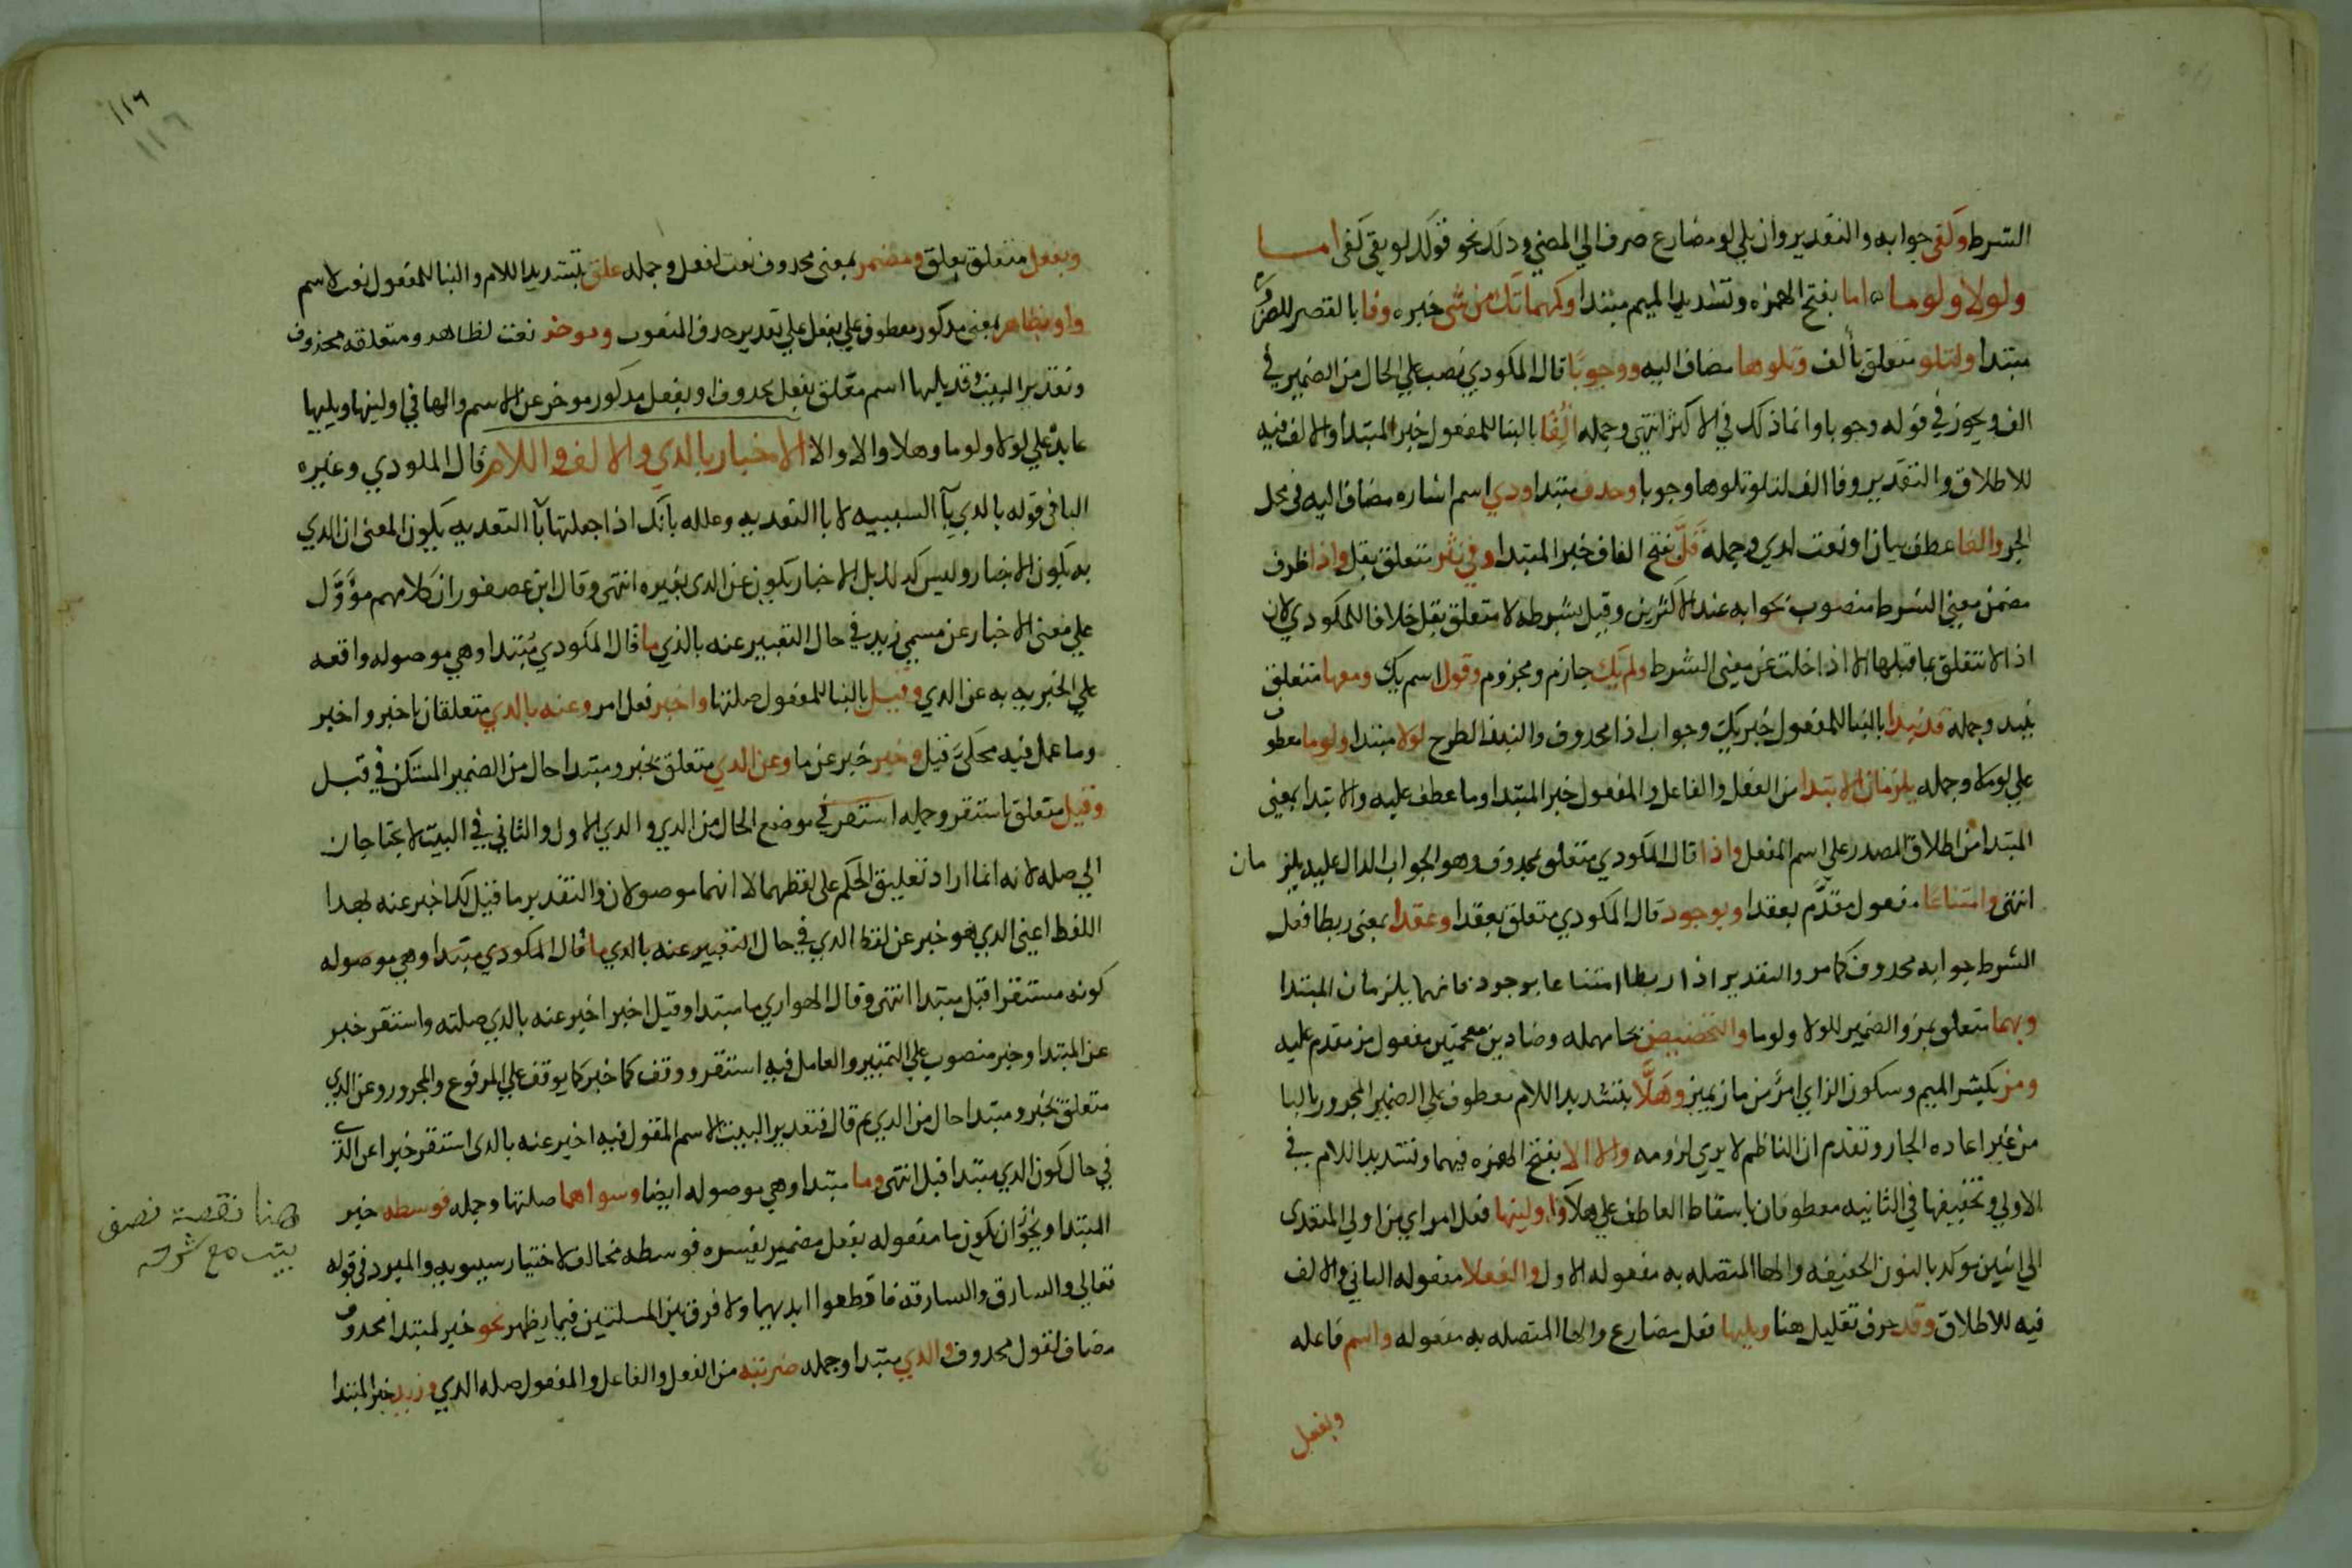 الشرط وكفى جوابه والتقدير وان يلي لو مضارع صرف الي المضي وذلك نحو قولك لو يفي كفى اما
ولولا ولوما اما بفتح الهمزه وتشديد الميم مبتدا وكمهما تك من شي خبره وفا بالقصر للضروره
مبتدا ولتلو متعلق بألف وتلوها مضاف اليه ووجوبًا قال المكودي نصب علي الحال من الضمير في
الف ويجوز في قوله وجوبا وانما ذلك في الاكثر انتهى وجمله أُلِفَا بالبنا للمفعول خبر المبتدا والالف فيه
للاطلاق والتقدير وفا الف لتلو تلوها وجوبا وحذف مبتدا ودي اسم اشاره مضاف اليه فى محل
الجر والفا عطف بيان او نعت لدي وجمله قَلَّ بفتح القاف خبر المبتدا وفي نثر متعلق بقل واذا ظرف
مضمن معنى الشرط منصوب بجوابه عند الاكثرين وقيل بشرطه لا متعلق بقل خلافا للمكودي لان
اذا لا تتعلق بما قبلها الا اذا خلت عن معنى الشرط ولم يك جازم ومجزوم وقول اسم يك ومعها متعلق
بنبد وجمله قد نبذا بالبنا للمفعول خبر يك وجواب اذا محدوف والنبذ الطرح لولا مبتدا ولوما معطوف
علي لولا وجمله يلزمان الابتدا من الفعل والفاعل والمفعول خبر المبتدا وما عطف عليه والابتدا بمعنى
المبتدا من اطلاق المصدر علي اسم المفعل واذا قال المكودي متعلق بمحدوف وهو الجواب الدال عليه يلزمان
انتهى وامتناعًا مفعول مقدَّم بعقدا وبوجود قال المكودي متعلق بعقدا وعقدا بمعنى ربطا فعل
الشرط جوابه محدوف كما مر والتقدير اذا ربطا امتناعا بوجود فانهما يلزمان المبتدا
وبهما متعلق بمز والضمير للولا ولوما والتحضيض بحا مهمله وضادين معجمتين مفعول مز مقدم عليه
ومز بكسر الميم وسكون الزاي امرٌ من ماز يميز وهَلَّا بتشديد اللام معطوف علي الضمير المجرور بالبا
من غير اعاده الجار وتقدم ان الناظم لا يري لزومه والا الا بفتح الهمزه فيهما وتشديد اللام في
الاولي وتخفيفها في الثانيه معطوفان باسقاط العاطف علي هلا واولينها فعل امر اي من اولي المتعدى
الي اثنين موكد بالنون الخفيفه والها المتصله به مفعوله الاول والفعلا مفعوله الثاني والالف
فيه للاطلاق وقد حرف تقليل هنا ويليها فعل مضارع والها المتصله به مفعوله واسم فاعله
وبفعل
١١٦
١١٦
وبفعل متعلق بعلق ومضمر بمعنى محدوف نعت لفعل وجمله علق بتشديد اللام والبنا للمفعول نعت لاسم
واو بظاهر بمعنى مدكور معطوف علي بفعل علي تقدير حدف المنعوت وموخر نعت لظاهر ومتعلقه محذوف
وتقدير البيت وقد يليها اسم متعلق بفعل محدوف او بفعل مدكور موخر عن الاسم والها في اولينها ويليها
عايد علي لولا ولوما وهلا والا والا الاخبار بالذي والالف واللام قال المكودي وغيره
البا فى قوله بالدي بآ السببيه لا با التعديه وعلله بانك اذا جعلتها بآ التعديه يكون المعنى ان الدي
به يكون الاخبار وليس كدلك بل الاخبار يكون عن الدى بغيره انتهى وقال ابن عصفور ان كلامهم مؤوَّل
علي معنى الاخبار عن مسمي زيد في حال التعبير عنه بالذي ما قال المكودي مبتدا وهي موصوله واقعه
علي المخبر به به عن الدي وقيل بالبنا للمفعول صلتها واخبر فعل امر وعنه بالدي متعلقان باخبر واخبر
وما عمل فيه محكىّ بقيل وخبر خبر عن ما وعن الدي متعلق بخبر ومبتدا حال من الضمير المستكن في قبل
وقبل متعلق باستقر وجمله استقر في موضع الحال من الدي والدي الاول والثاني في البيت لا يحتاجان
الي صله لانه انما اراد تعليق الحكم على لفظهما لا انهما موصولان والتقدير ما قيل لك اخبر عنه بهدا
اللفظ اعني الدي هو خبر عن لفظ الدي في حال التعبير عنه بالدي ما قال المكودي مبتدا وهي موصوله
كونه مستقرا قبل مبتدا انتهى وقال الهواري ما مبتدا وقيل اخبر اخبر عنه بالدي صلته واستقر خبر
عن المبتدا وخبر منصوب علي التمييز والعامل فيه استقر ووقف كما خبر كما يوقف علي المرفوع والمجرور وعن الدي
متعلق بخبر ومبتدا حال من الدي ثم قال فتقدير البيت الاسم المقول فيه اخبر عنه بالدى استقر خبرا عن الذي
في حال كون الدي مبتدا قبل انتهى وما مبتدا وهي موصوله ايضا وسواهما صلتها وجمله فوسطه خبر
المبتدا ويجوز ان يكون ما مفعوله بفعل مضمر يفسره فوسطه مخالف لاختيار سيبويه والمبرد فى قوله
تعالي والسارق والسارقه فاقطعوا ايديهما ولا فرق بين المسلتين فيما يظهر نحو خبر لمبتدا محدوف
مضاف لقول محدوف والدي مبتدا وجمله ضربته من الفعل والفاعل والمفعول صله الدي وزيد خبر المبتدا
هنا نقصة نصف
بيت مع شرحه